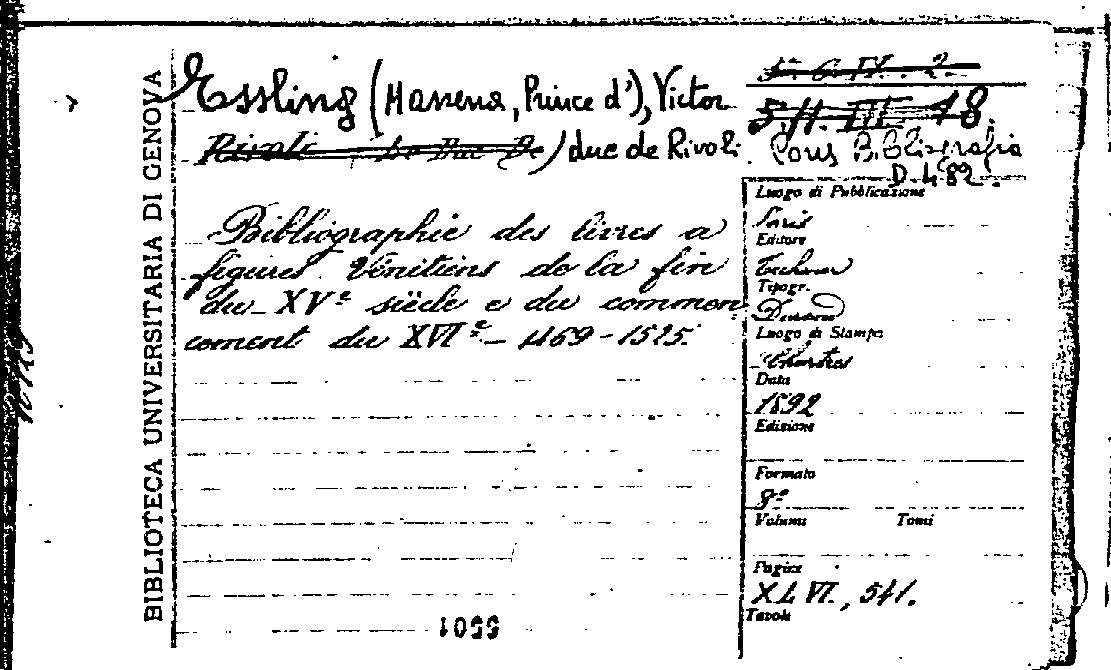 BIBLIOTECA UNIVERSITARIA DI GENOVA
Essling (Massena, Prince d'), Victor
Rivoli Le Duc De) duc de Rivoli
Bibliographie des livres a
figures Vénitiens de la fin
du XVe siècle e du commen
coment du XVIe - 1469-1525.
5.H. III. 48.
Cons Bibliografia
D. 482.
Luogo di Pubblicazione
Paris
Editore
Techener
Tipogr.
Durand
Luogo di Stampa
Chartres
Data
1892
Edizione
Formato
8º
Volumi Tomi
Pagine
XLVI, 541.
Tavole